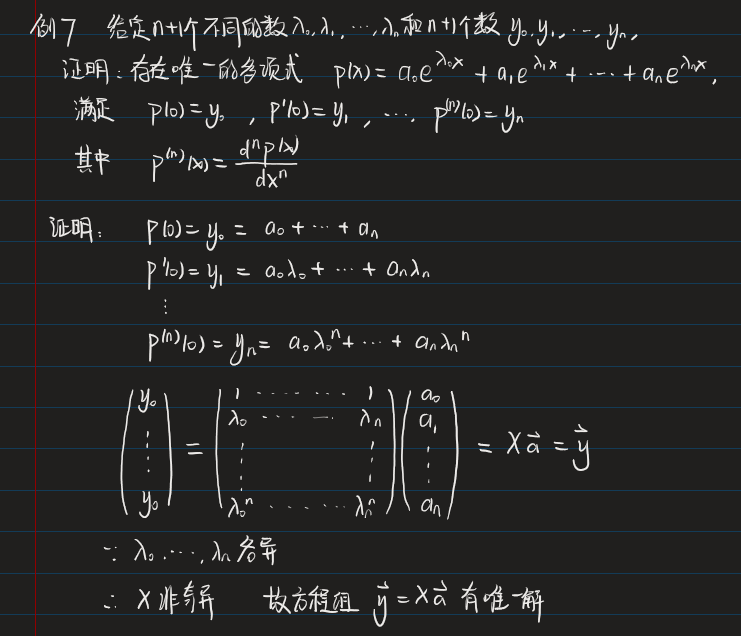 例7 给定n+1个不同的数λ₀,λ₁,⋯,λₙ和n+1个数 y₀,y₁,⋯,yₙ,
证明:存在唯一的多项式 p(x) = a₀e^{λ₀x} + a₁e^{λ₁x} + ⋯ + aₙe^{λₙx},
满足 p(0)=y₀, p'(0)=y₁, ⋯, p⁽ⁿ⁾(0)=yₙ
其中 p⁽ⁿ⁾(x) = \frac{dⁿp(x)}{dxⁿ}
证明: p(0)=y₀ = a₀+⋯+aₙ
p'(0)=y₁ = a₀λ₀+⋯+aₙλₙ
⋮
p⁽ⁿ⁾(0)=yₙ= a₀λ₀ⁿ+⋯+aₙλₙⁿ
\begin{pmatrix} y₀ \\ ⋮ \\ y₀ \end{pmatrix} = \begin{pmatrix} 1 & ⋯ & 1 \\ λ₀ & ⋯ & λₙ \\ ⋮ & & ⋮ \\ λ₀ⁿ & ⋯ & λₙⁿ \end{pmatrix} \begin{pmatrix} a₀ \\ a₁ \\ ⋮ \\ aₙ \end{pmatrix} = X\vec{a} = \vec{y}
∵ λ₀,⋯,λₙ各异
∴ X非奇异 故方程组 \vec{y}=X\vec{a} 有唯一解